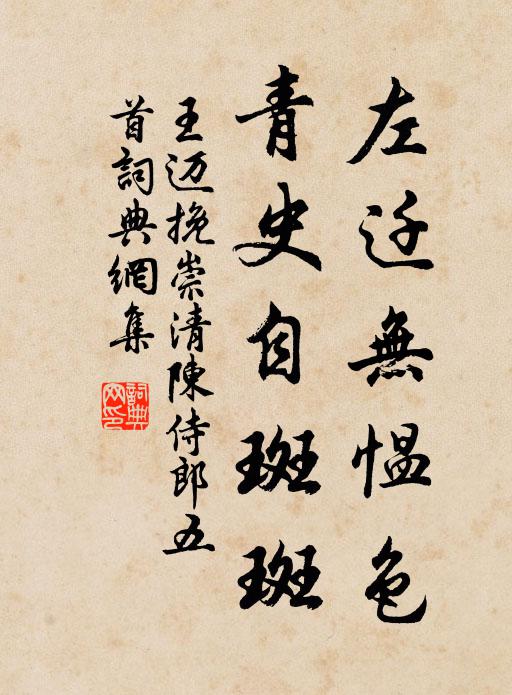 左迁無愠色
青史自斑斑
王迈挽崇清陳侍郎五
首詞典網集
詞典
网印